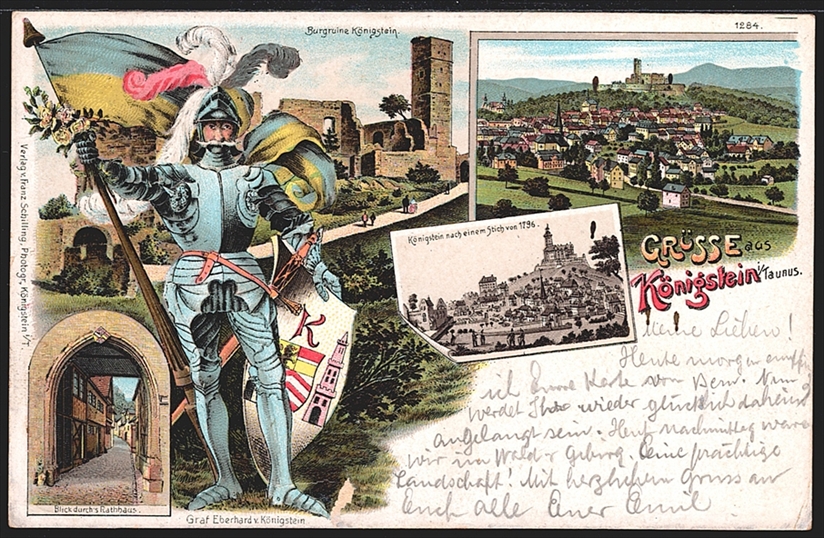 Burgruine Königstein.
1284.
Verlag v. Franz Schilling, Photogr. Königstein i/T.
Königstein nach einem Stich von 1796.
GRÜSSE aus
Königstein i/Taunus.
K
Blick durch's Rathhaus.
Graf Eberhard v. Königstein.
Meine Lieben!
Heute morgen
ich Eure Karte von Bern. Nun
werdet Ihr wieder glücklich daheim
angelangt sein. Heut nachmittag waren
wir im Wald u. Gebirg. Eine prächtige
Landschaft! Mit herzlichem Gruss an
Euch alle Euer Emil.